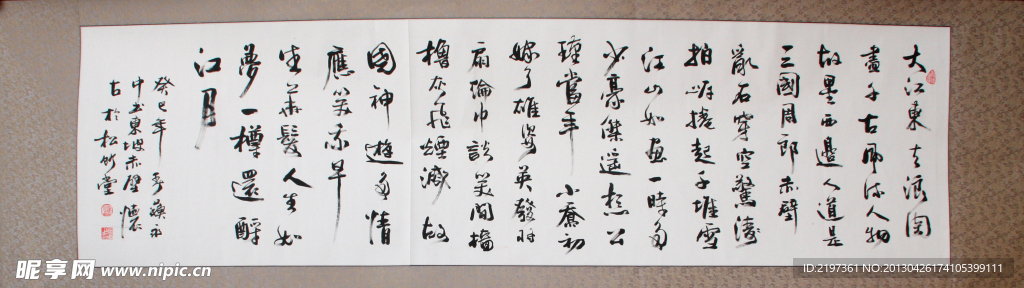 大江東去浪淘
盡千古風流人物
故壘西邊人道是
三國周郎赤壁
亂石穿空驚濤
拍岸捲起千堆雪
江山如畫一時多
少豪傑遙想公
瑾當年小喬初
嫁了雄姿英發羽
扇綸巾談笑間檣
櫓灰飛煙滅故
國神遊多情
應笑我早
生華髮人生如
夢一樽還酹
江月
癸巳年
中書東坡赤壁懷
古於松竹堂
昵享网 www.nipic.cn
ID:2197361 NO:20130426174105399111